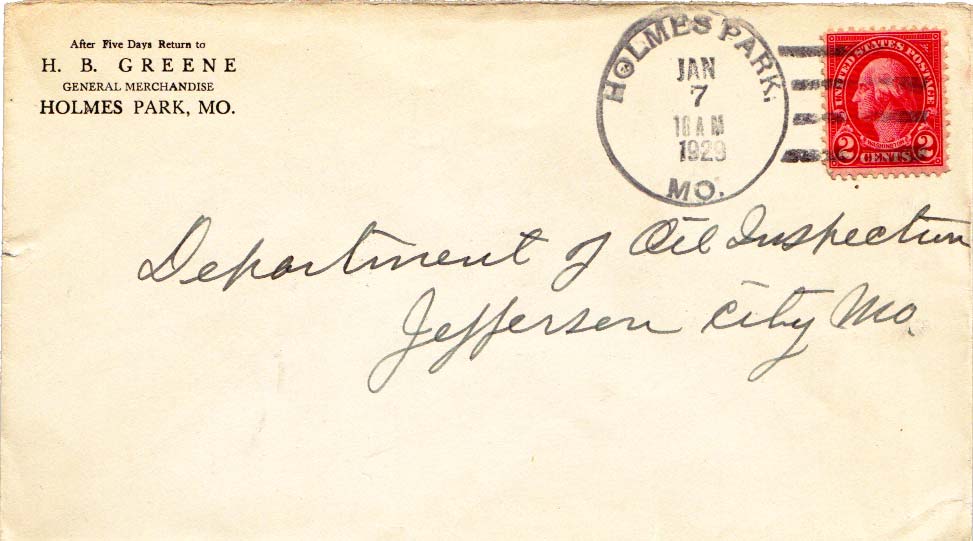 After Five Days Return to
H. B. GREENE
GENERAL MERCHANDISE
HOLMES PARK, MO.
HOLMES PARK.
JAN
7
10 A M
1929
MO.
UNITED STATES POSTAGE
WASHINGTON
2 CENTS 2
Department of Oil Inspection
Jefferson City Mo.